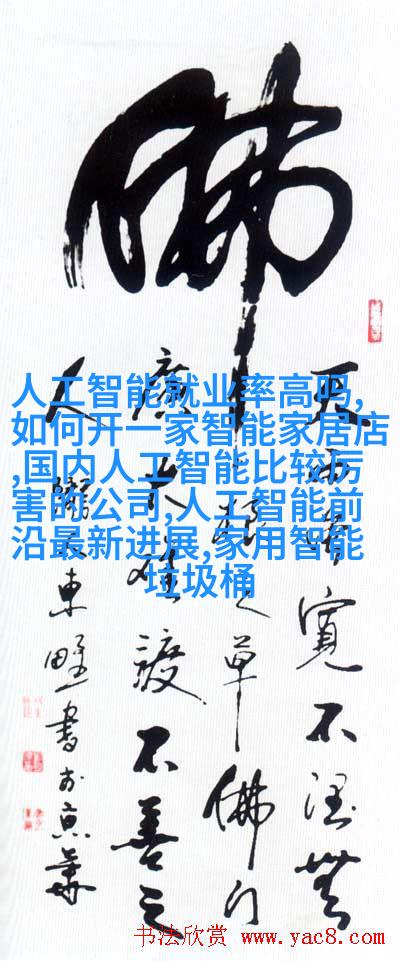 佛
天雨雖寬不潤無
根之草佛门
廣大難渡不善之
人
東野書於京華
人工智能就业率高吗,
如何开一家智能家居店
,国内人工智能比较厉
害的公司,人工智能前
沿最新进展,家用智能
垃圾桶
书法欣赏 www.yac8.com